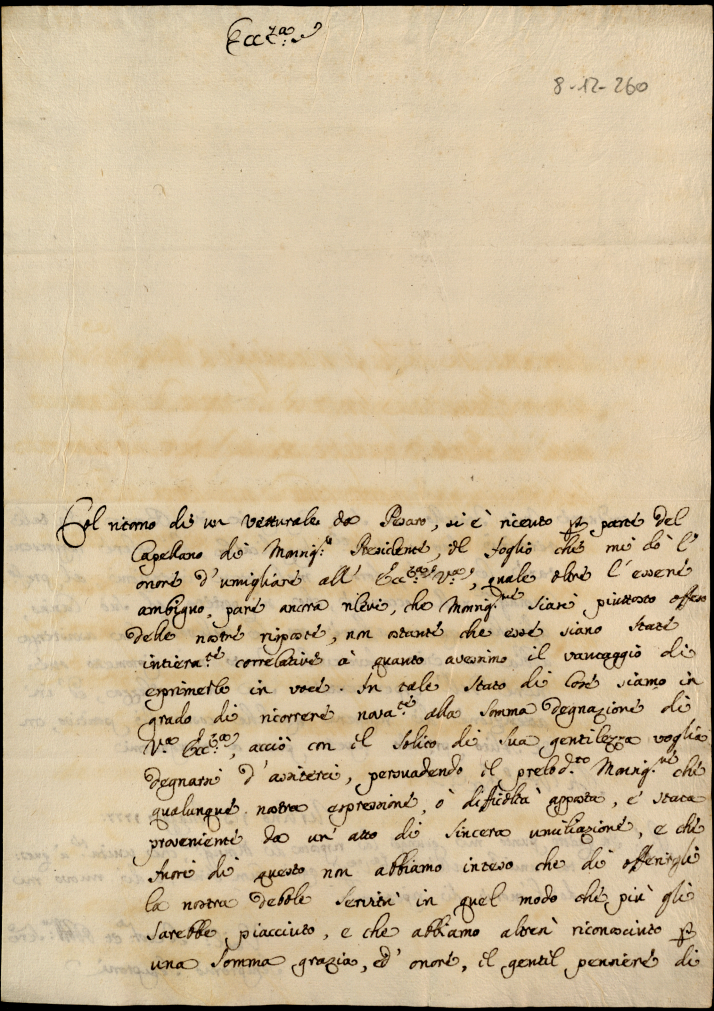 Ecc.za
8-12-260
Col ritorno di un vetturale da Pesaro, si è riceuto per parte del
Capellano di Monsig.re Presidente, il foglio che mi dò l'
onore d'umigliare all' Ecc.za V.ra, quale oltre l'essere
ambiguo, pare ancora rilevi, che Monsig.re siasi piuttosto offeso
delle nostre risposte, non ostante che esse siano state
intiera.te correlative à quanto avessimo il vantaggio di
esprimerle in voce. In tale stato di cose siamo in
grado di ricorrere nova.te alla somma degnazione di
V.ra Ecc.za, acciò con il solito di sua gentilezza voglia
degnarsi d'assiterci, persuadendo il prelod.to Monsig.re che
qualunque nostra espressione, ò difficoltà apposta, è stata
proveniente da un'atto di sincera umiliazione, e che
fuori di questo non abbiamo inteso che di offerirgli
la nostra debole servitù in quel modo che più gli
sarebbe piacciuto, e che abbiamo altresì riconosciuto per
una somma grazia, ed' onore, il gentil pensiere di